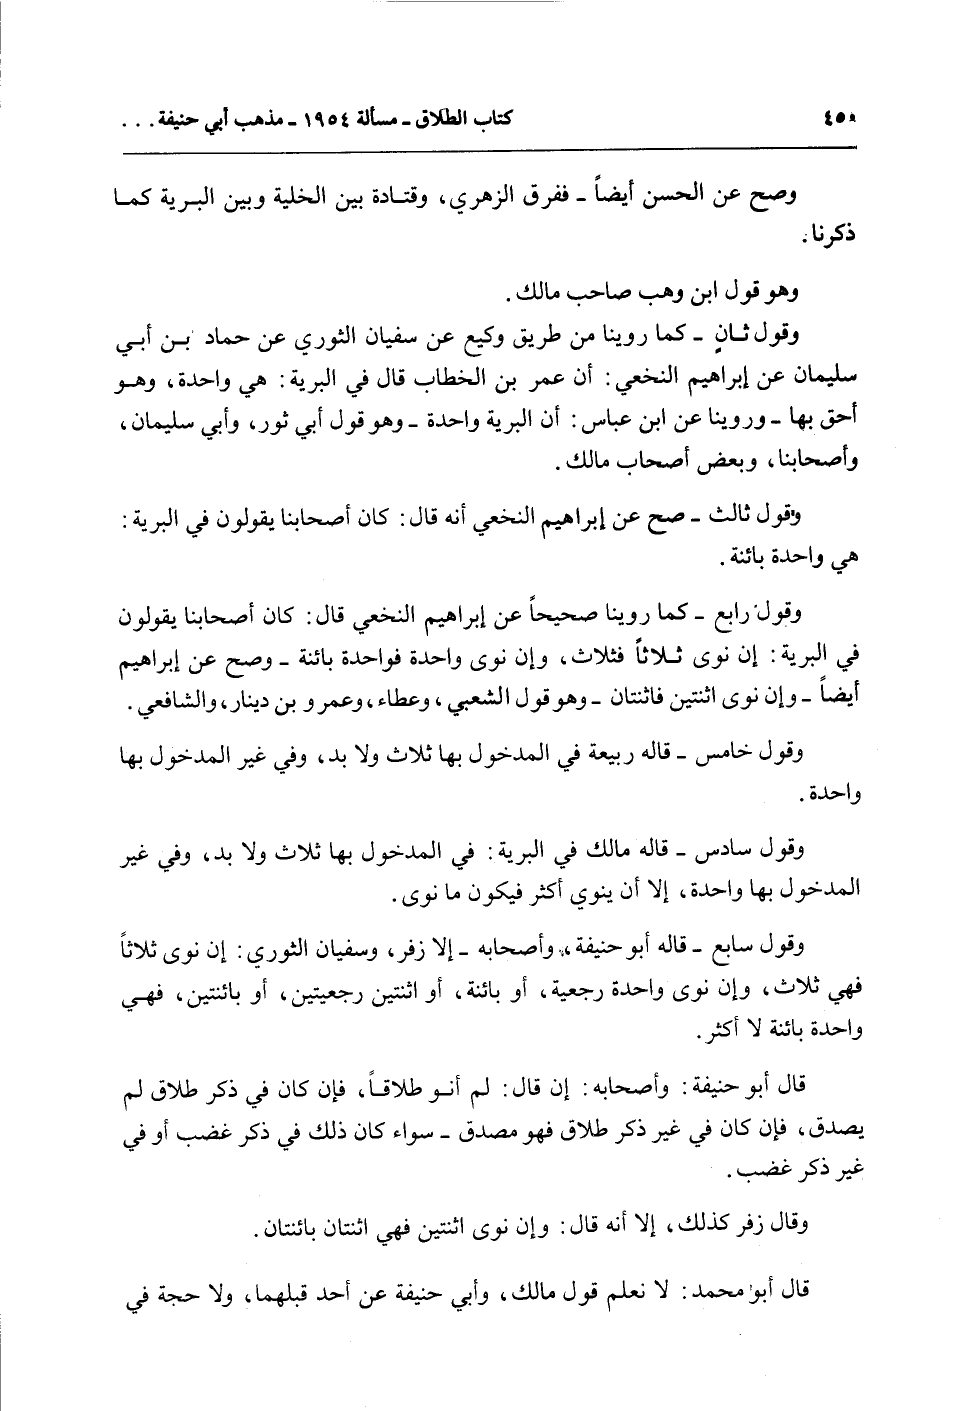 ٤٥٠ كتاب الطلاق ـ مسألة ١٩٥٤ ـ مذهب أبي حنيفة . . .
وصح عن الحسن أيضاً ـ ففرق الزهري، وقتادة بين الخلية وبين البرية كما
ذكرنا.
وهو قول ابن وهب صاحب مالك.
وقول ثانٍ ـ كما روينا من طريق وكيع عن سفيان الثوري عن حماد بن أبي
سليمان عن إبراهيم النخعي: أن عمر بن الخطاب قال في البرية: هي واحدة، وهو
أحق بها ـ وروينا عن ابن عباس: أن البرية واحدة ـ وهو قول أبي ثور، وأبي سليمان،
وأصحابنا، وبعض أصحاب مالك.
وقول ثالث ـ صح عن إبراهيم النخعي أنه قال: كان أصحابنا يقولون في البرية:
هي واحدة بائنة.
وقول رابع ـ كما روينا صحيحاً عن إبراهيم النخعي قال: كان أصحابنا يقولون
في البرية: إن نوى ثلاثاً فثلاث، وإن نوى واحدة فواحدة بائنة ـ وصح عن إبراهيم
أيضاً ـ وإن نوى اثنتين فاثنتان ـ وهو قول الشعبي، وعطاء، وعمرو بن دينار، والشافعي.
وقول خامس ـ قاله ربيعة في المدخول بها ثلاث ولا بد، وفي غير المدخول بها
واحدة.
وقول سادس ـ قاله مالك في البرية: في المدخول بها ثلاث ولا بد، وفي غير
المدخول بها واحدة، إلا أن ينوي أكثر فيكون ما نوى.
وقول سابع ـ قاله أبو حنيفة، وأصحابه ـ إلا زفر، وسفيان الثوري: إن نوى ثلاثاً
فهي ثلاث، وإن نوى واحدة رجعية، أو بائنة، أو اثنتين رجعيتين، أو بائنتين، فهي
واحدة بائنة لا أكثر.
قال أبو حنيفة: وأصحابه: إن قال: لم أنو طلاقاً، فإن كان في ذكر طلاق لم
يصدق، فإن كان في غير ذكر طلاق فهو مصدق ـ سواء كان ذلك في ذكر غضب أو في
غير ذكر غضب.
وقال زفر كذلك، إلا أنه قال: وإن نوى اثنتين فهي اثنتان بائنتان.
قال أبو محمد: لا نعلم قول مالك، وأبي حنيفة عن أحد قبلهما، ولا حجة في